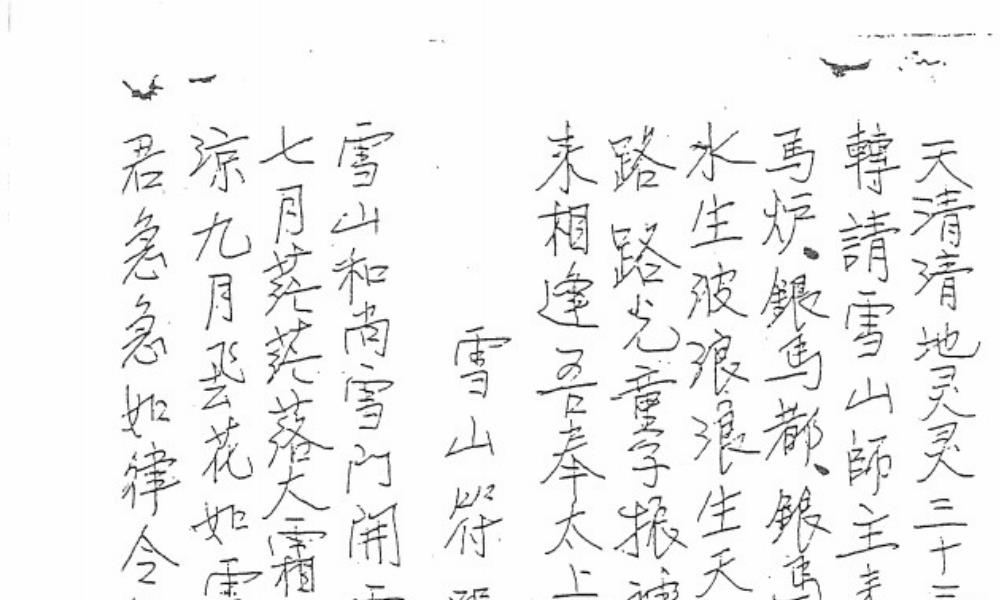 天清清地灵灵三十三
轉請雪山師主來
馬炉、銀馬都、銀馬
水生波浪浪生天
路路光童子振
来相逢吾奉太上
雪山符
雪山和尚雪門開雪
七月茫茫落大霜
涼九月飛花如雪
君急急如律令